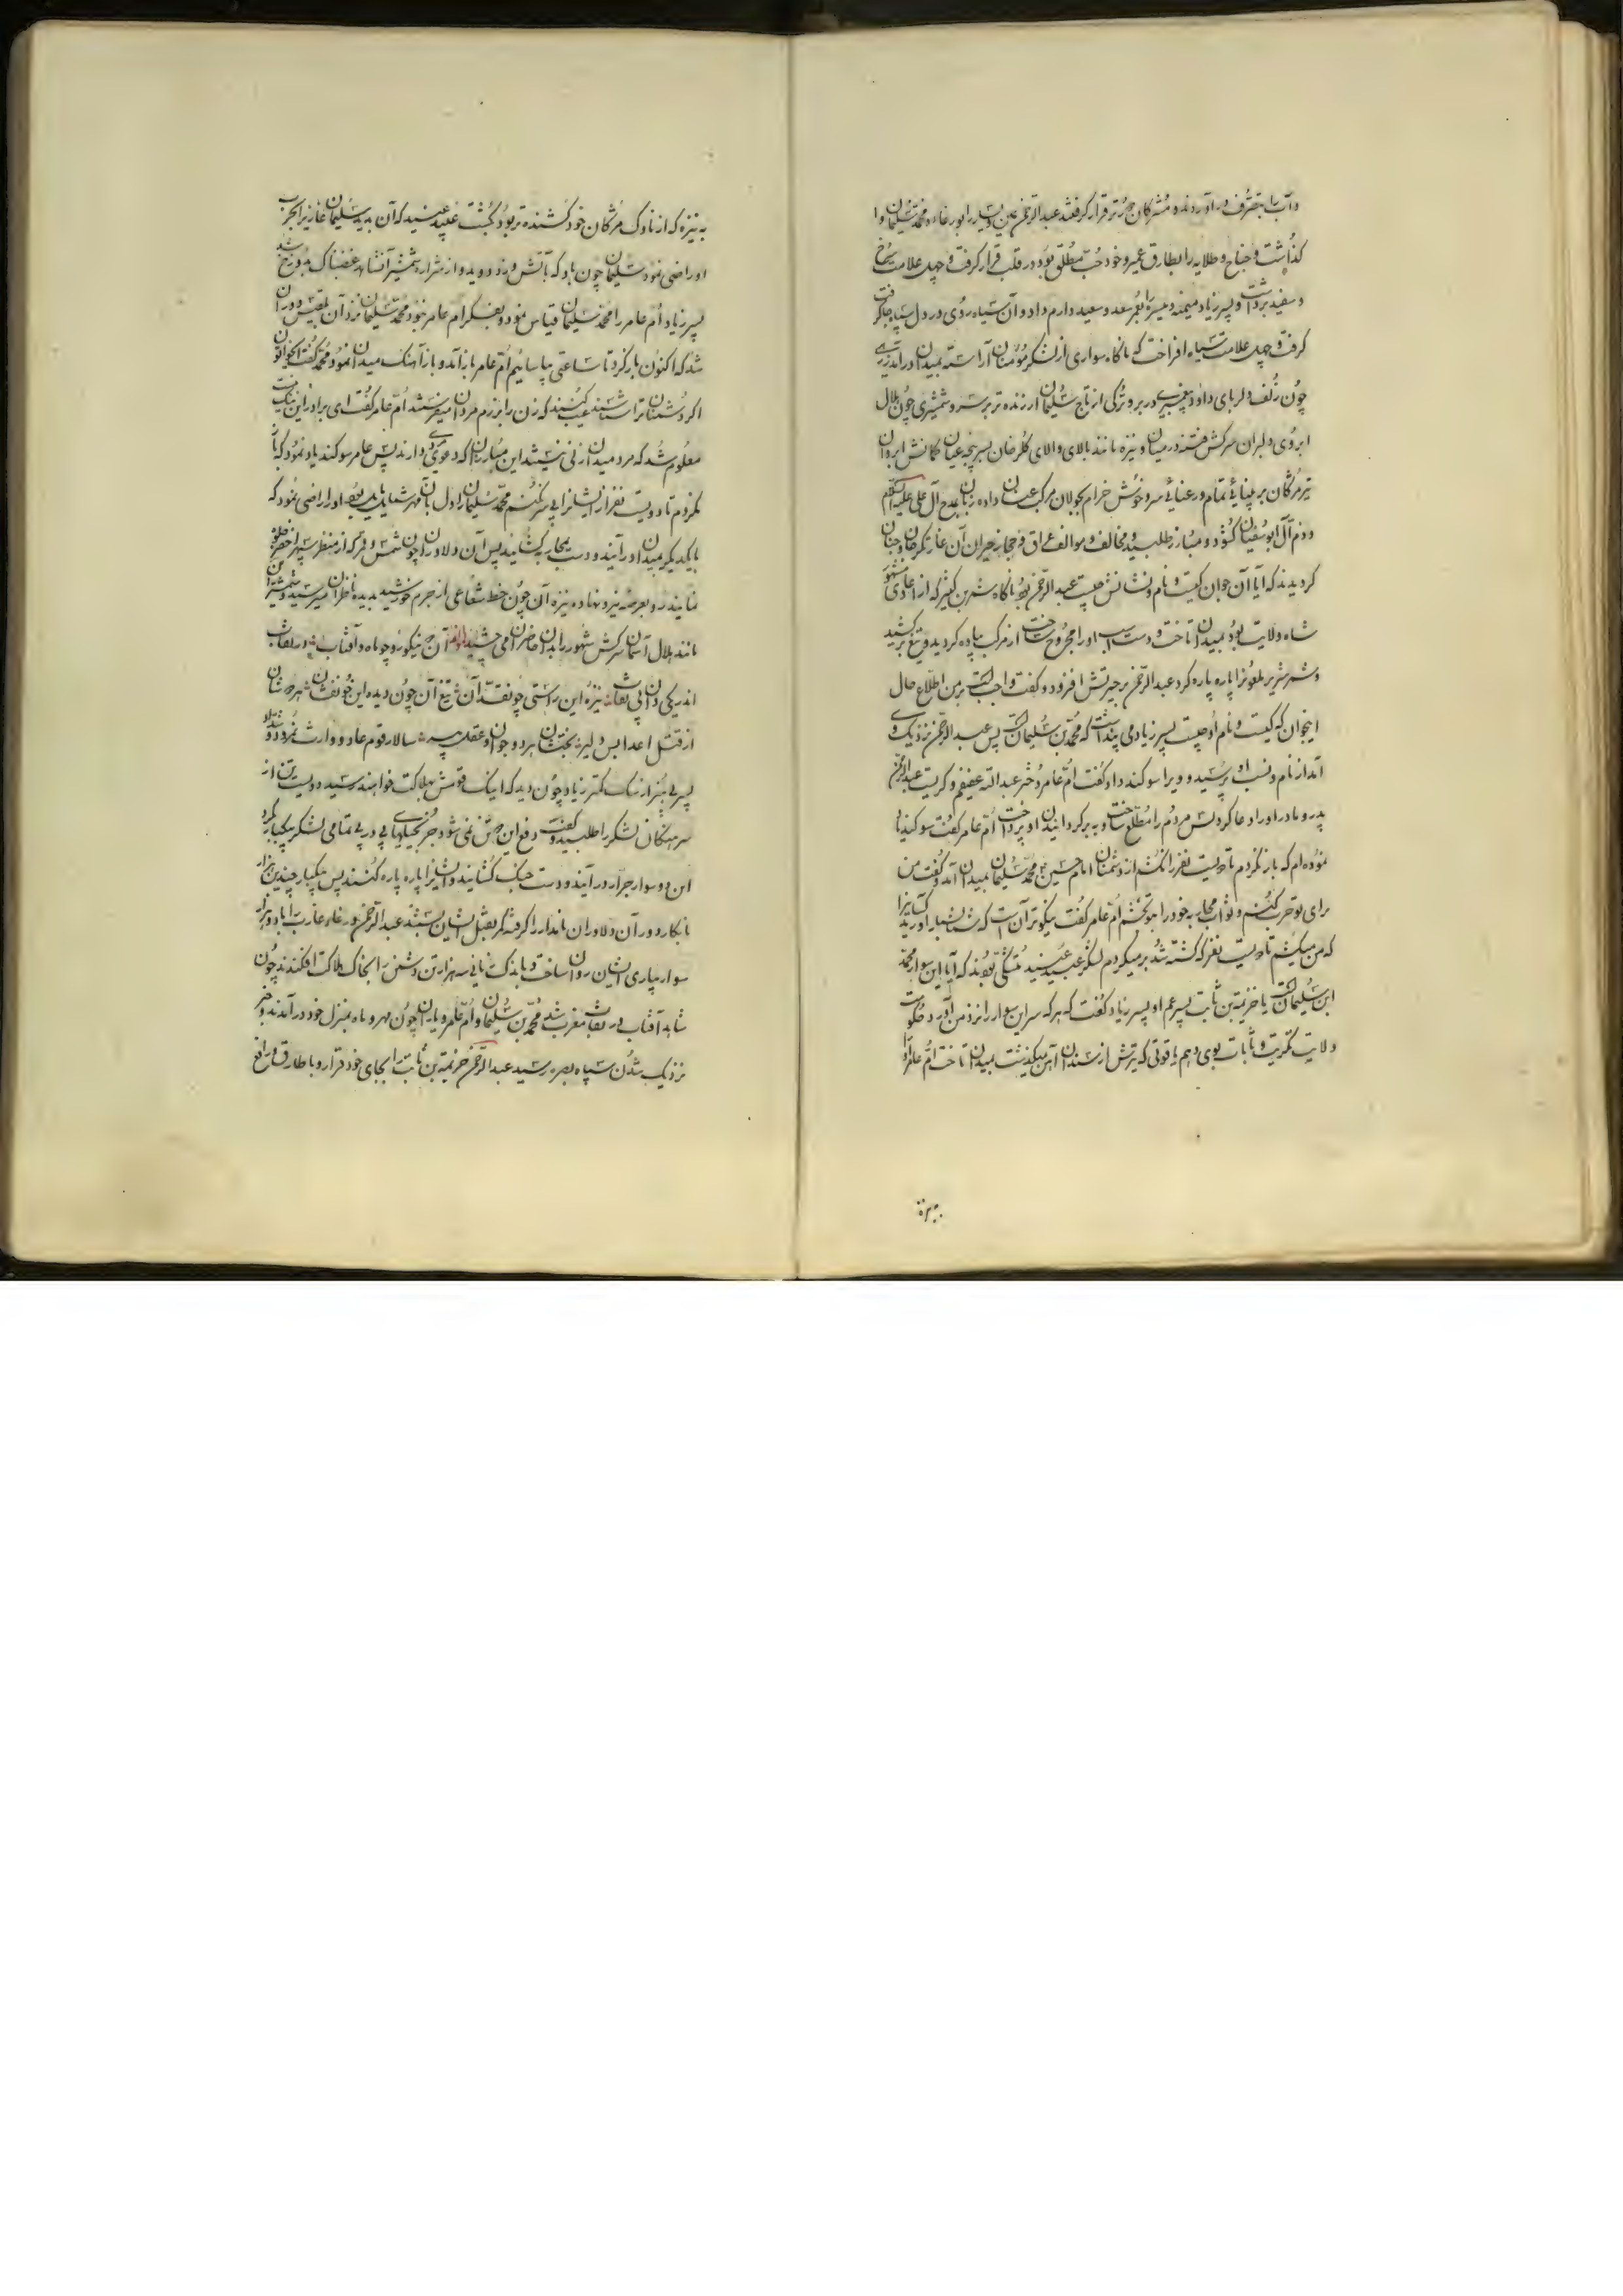 و آب را بتصرف در آوردند و مشرکان دورتر قرار گرفتند عبدالرحمن یمین و یسار را بورغاء و محمد سلیمان وا
گذاشت و جناح و طلایه را بطارق عمیر و خود حب مطلق بود در قلب قرار گرفت و چهل علامت سرخ
و سفید برداشت و پسر زیاد میمنه و میسره را بعمر سعد و سعید دارم داد و آن سیاه روی در دل سپاه جا گرفت
گرفت و چهل علامت سیاه افراخت که ناگاه سواری از لشکر مؤمنان آراسته بمیدان در آمد زرهی
چون زلف دلربای داود پیغمبر در بر و ترکی از تاج سلیمان ارزنده تر بر سر و شمشیری چون هلال
ابروی دلبران سرکش فتنه در میان و نیزه مانند بالای والای گلرخان بسر پنجه عیان کمانش ابروان
تیر مژگان بر پنائی تمام و رعنائی سرو خوش خرام بجولان مرکب عنان داده زبان بمدح آل علی علیه السلام
و ذم آل ابوسفیان گشود و مبارز طلبید و مخالف و موالف عراق و حجاز حیران آن غارتگر جان و جنان
گردیدند که آیا آن جوان کیست و نام و نشانش چیست عبدالرحمن بود ناگاه شمر بن کثیر که از اعادی مشهور
شاه ولایت بود بمیدان تاخت و دست اسب او را مجروح ساخت از مرکب پیاده گردید و تیغ برکشید
و شمر شریر ملعون را پاره پاره کرد عبدالرحمن بر حیرتش افزود و گفت واجبست بر من اطلاع حال
اینجوان که کیست و نام او چیست پسر زیاد می پنداشت که محمد بن سلیمان است پس عبدالرحمن نزدیک وی
آمد از نام و نسب او پرسید و ویرا سوگند داد گفت ام عامر دختر عبدالله عفیفم و گریست عبدالرحمن
پدر و مادر او را دعا کرد پس مردم را مطلع ساخت و به برگردانیدن او پرداخت ام عامر گفت سوگند یاد
نموده ام که باز نگردم تا دویست نفر را نکشم از دشمنان امام حسین ع محمد سلیمان بمیدان آمد و گفت من
برای تو حرب کنم و ثواب محاربه خود را بتو بخشم ام عامر گفت نیکوتر آن است که شما شمار آورید کسانی را
که من میکشم تا دویست نفر که کشته شد بر میگردم لشکر عبید متشکی بودند که آیا این سوار محمد
ابن سلیمان است یا خزیمة بن ثابت پسر عم او پسر زیاد گفت که هر که سر این سوار را نزد من آورد حکومت
ولایت تکریت و ثابات بوی دهم یاقوتی که تیرش از سندان آهن میگذشت بمیدان تاخت ام عامر او را
به نیزه
به نیزه که از ناوک مژگان خود کشنده تر بود بکشت عبید که آن بدید سلیمان غازی را بحرب
او راضی نمود سلیمان چون باد که بآتش وزد دوید و از شرار شمشیر آتشبار غضبناک بدوزخ شد
پسر زیاد ام عامر را محمد سلیمان قیاس نمود و بفکر ام عامر خود محمد سلیمان نزد آن بلقیس دوران
شد که اکنون بازگرد تا ساعتی بیاسائیم ام عامر باز آمد و باز آهنگ میدان نمود محمد گفت ایخواتون
اگر دشمنان ترا شناسند عیب کنند که زن را برزم مردان میفرستند ام عامر گفت ای برادر این نیکست
معلوم شد که مرد میدان زنی نیستند این مبارزان که دعوی مردی دارند پس عامر سوگند یاد نمود که باز
نگردم تا دویست نفر از ایشانرا بی سر نکنم محمد سلیمان را دل بآن مهر شمایل مایل بود او را راضی نمود که
با یکدیگر بمیدان در آیند و دست بمحاربه گشایند پس آن دلاوران چون شمس و قمر که از منظر سپهر اخضر جلوه
نمایند رو بعرصه نبرد نهاده نیزه آن چون خط شعاعی از جرم خورشید بدیده ناظران میرسید و شمشیر این
مانند هلال آسمان سرکش شهور را بدان حاضران می آن جستیکو رو چو ماه و آفتاب در نقاب
اندر یکی وان بی نقاب نیزه این راستی چو نقد آن تیغ آن چون دیده این خونفشان شهر
از قتل اعدا بس دلیر بخت هر دو جوان و عقل پیر سالار قوم عاد و وارث نمرود و شداد
پسر بی هنر از سگ کمتر زیاد چون دید که اینک قومش بهلاکت خواهند رسید دویست تن از
سرهنگان لشکر را طلبید و گفت دفع این دو تن نمی شود جز بحیله بی در پی تمامی لشکر یکبار گرد
این دو سوار جرار در آیند و دست جنگ گشایند و ایشانرا پاره پاره کنند پس بیکبار چندین هزار
نابکار دور آن دلاوران نامدار را گرفته کمر بقتل ایشان بستند عبدالرحمن ورغاء عازب را با دو هزار
سوار بیاری ایشان روان ساخت و باندک زمانی سه هزار تن دشمن را بخاک هلاکت افکندند چون
شاهد آفتاب در نقاب مغرب شد محمد بن سلیمان و ام عامر و یاران چون مهر و ماه بمنزل خود در آمدند و خبر
نزدیک شدن سپاه بصره رسید عبدالرحمن خزیمة بن ثابت را بجای خود قرار و با طارق و رافع